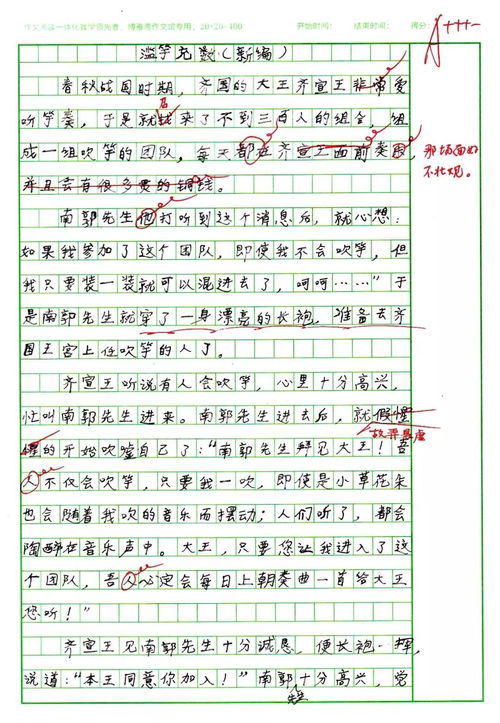 作文阅读一体化教学领先者，博雅湾作文馆专用，20×20=400 开始时间： 结束时间： 得分：
A++++
滥竽充数(新编)
春秋战国时期，齐国的大王齐宣王非常爱
听竽奏，于是就找来了不到三百人的组合，组
召
成一组吹竽的团队，每天都在齐宣王面前奏国，
并且会有很多贵的铜钱。
那场面好
不壮观。
南郭先生他打听到这个消息后，就心想：
如果我参加了这个团队，即使我不会吹竽，但
我只要装一装就可以混进去了，呵呵……”于
是南郭先生就穿了一身漂亮的长袍，准备去齐
国王宫上任吹竽的人了。
齐宣王听说有人会吹竽，心里十分高兴，
忙叫南郭先生进来。南郭先生进去后，就假惺
故弄玄虚
惺的开始吹嘘自己了：“南郭先生拜见大王！吾
人不仅会吹竽，只要我一吹，即使是小草花朵
也会随着我吹的音乐而摆动；人们听了，都会
陶醉在音乐声中。大王，只要您让我进入了这
个团队，吾人必定会每日上朝奏曲一首给大王
您听！”
齐宣王见南郭先生十分诚恳，便长袍一挥，
说道：“本王同意你加入！”南郭十分高兴，党
先生